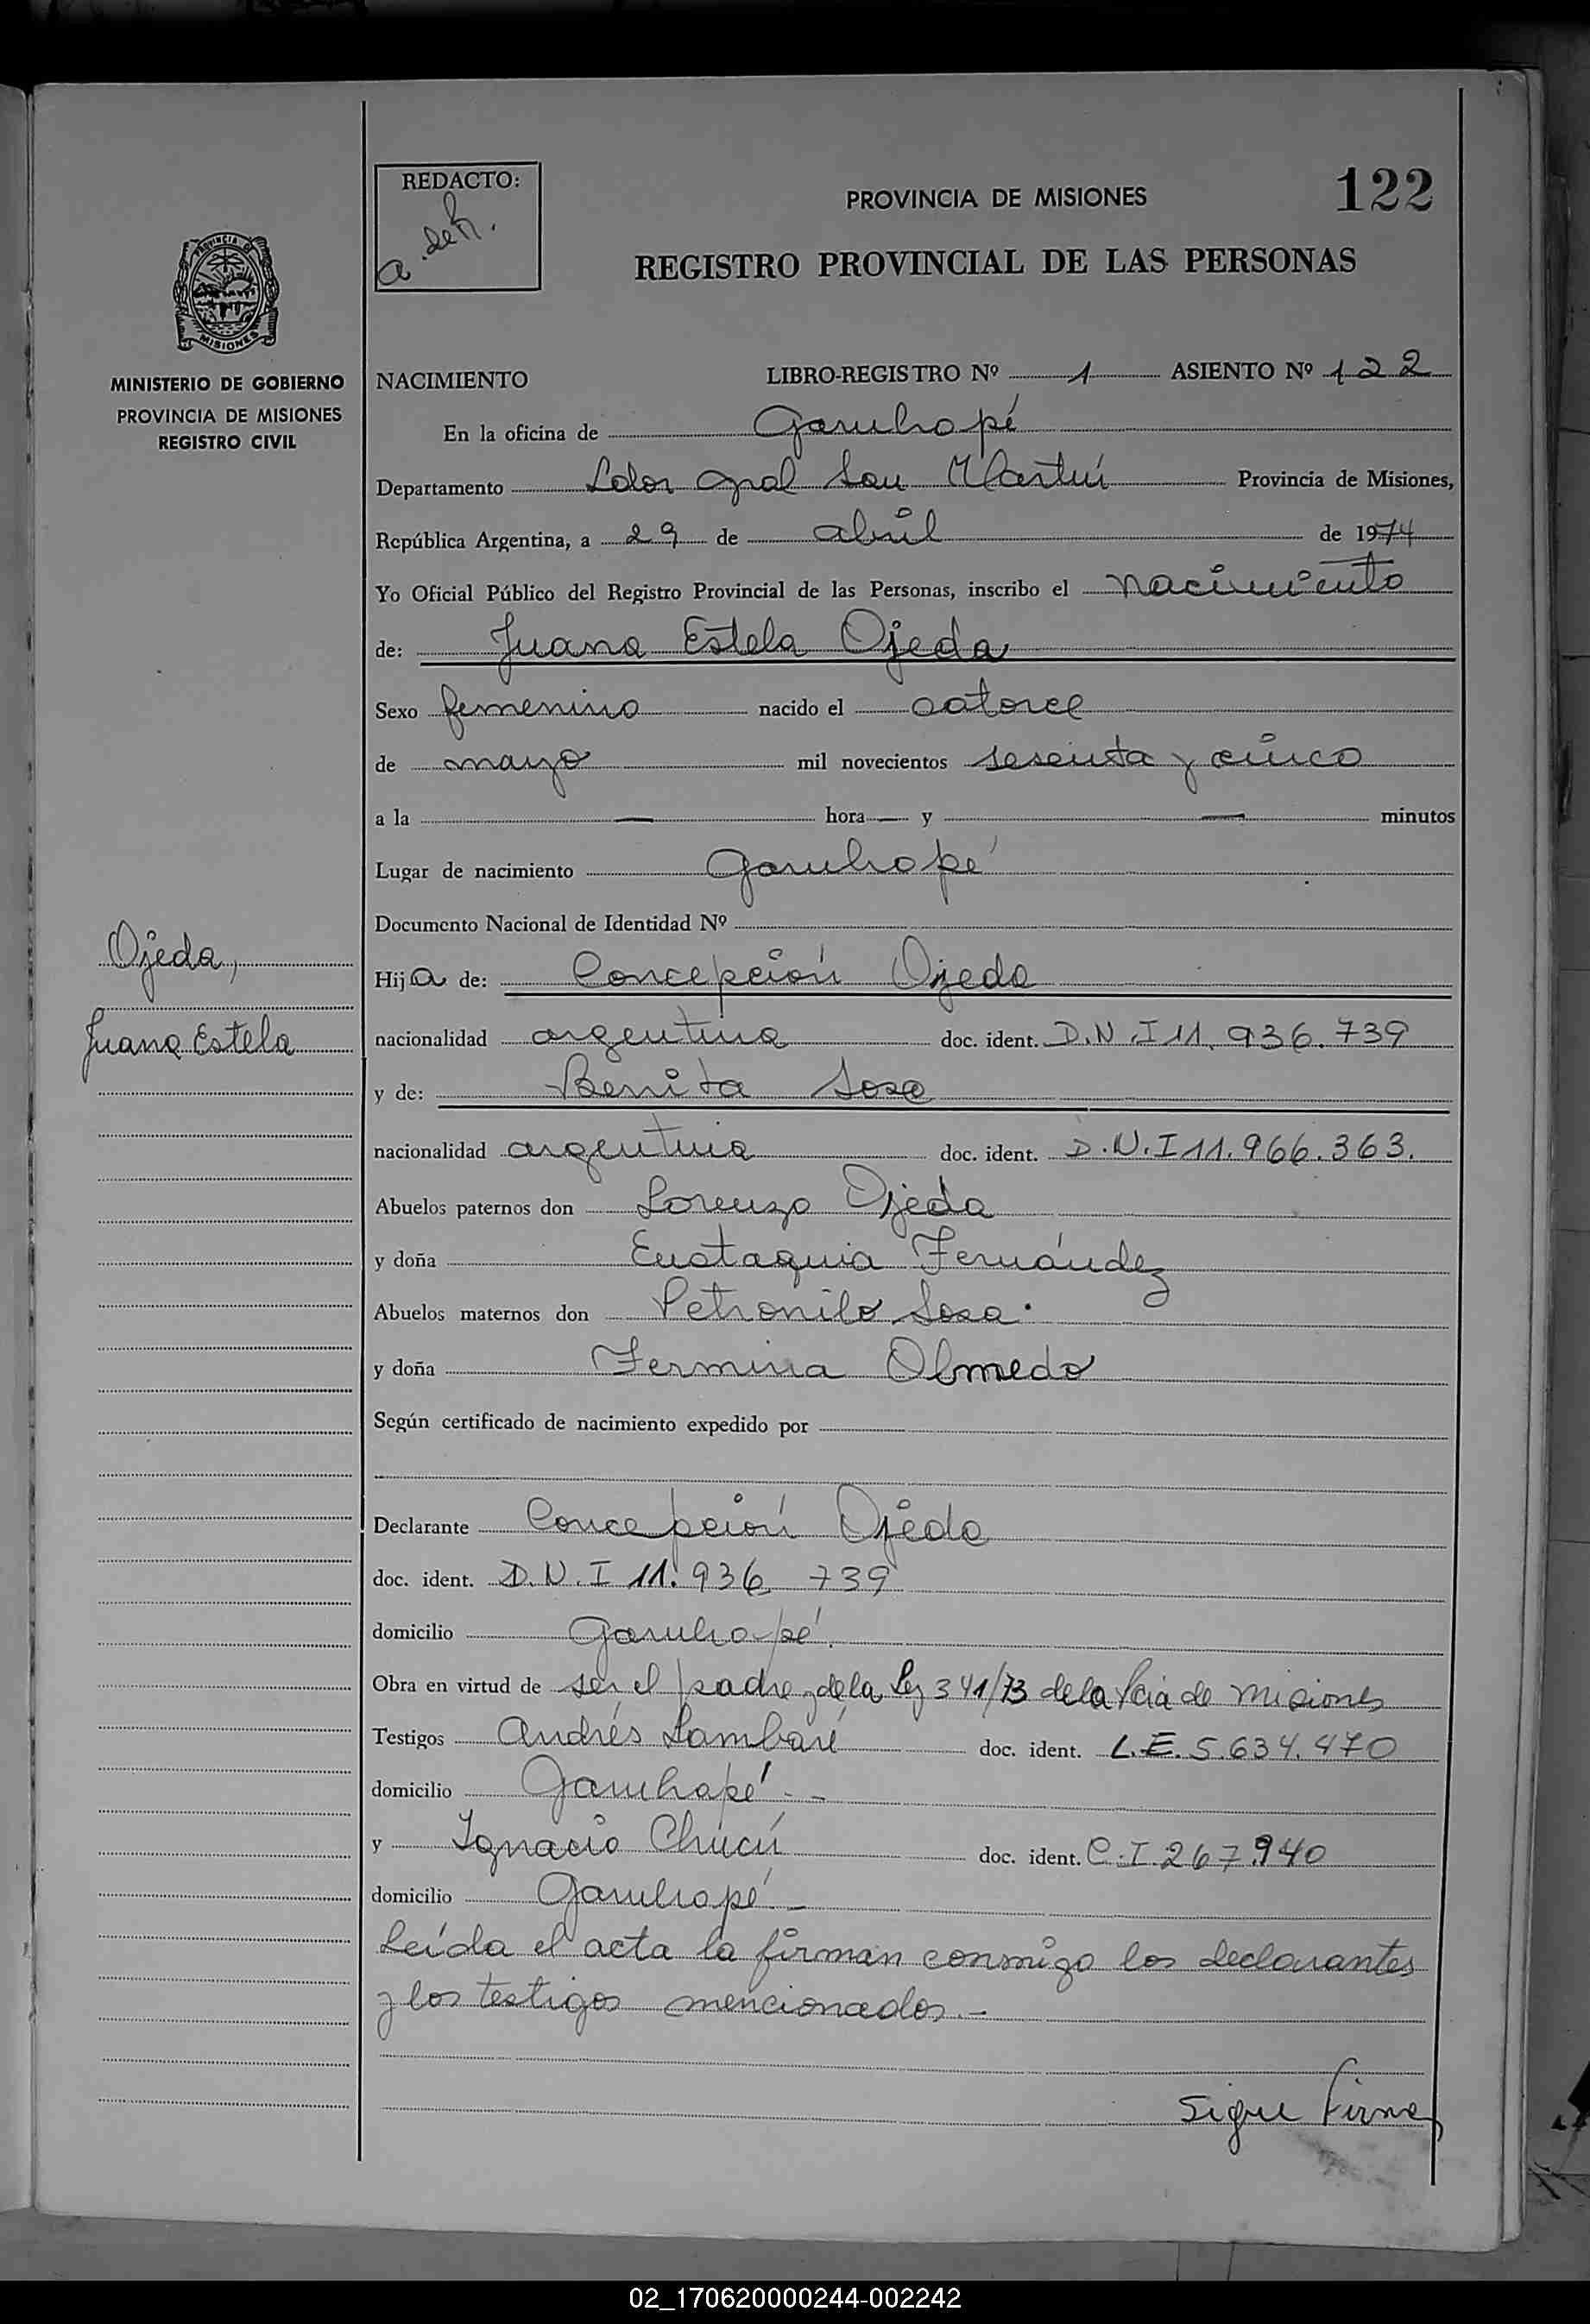 REDACTO:
a. de R.
PROVINCIA DE MISIONES
122
REGISTRO PROVINCIAL DE LAS PERSONAS
PROVINCIA DE
MISIONES
MINISTERIO DE GOBIERNO
PROVINCIA DE MISIONES
REGISTRO CIVIL
NACIMIENTO LIBRO-REGISTRO Nº 1 ASIENTO Nº 122
En la oficina de Garuhapé
Departamento Ldor Gral San Martín Provincia de Misiones,
República Argentina, a 29 de abril de 1974
Yo Oficial Público del Registro Provincial de las Personas, inscribo el nacimiento
de: Juana Estela Ojeda
Sexo femenino nacido el catorce
de mayo mil novecientos sesenta y cinco
a la — hora — y — minutos
Lugar de nacimiento Garuhapé
Documento Nacional de Identidad Nº
Ojeda,
Juana Estela
Hija de: Concepción Ojeda
nacionalidad argentina doc. ident. D.N.I 11.936.739
y de: Benita Sosa
nacionalidad argentina doc. ident. D.N.I 11.966.363.
Abuelos paternos don Lorenzo Ojeda
y doña Eustaquia Fernández
Abuelos maternos don Petronilo Sosa.
y doña Fermina Olmedo
Según certificado de nacimiento expedido por
Declarante Concepción Ojeda
doc. ident. D.N.I 11.936.739
domicilio Garuhapé.
Obra en virtud de ser el padre y de la Ley 341/73 de la Pcia de Misiones
Testigos Andrés Lambaré doc. ident. L.E. 5.634.470
domicilio Garuhapé.-
y Ignacio Chucú doc. ident. C.I 267.940
domicilio Garuhapé.-
Leída el acta la firman conmigo los declarantes
y los testigos mencionados.-
Sigue Firmas
02_170620000244-002242